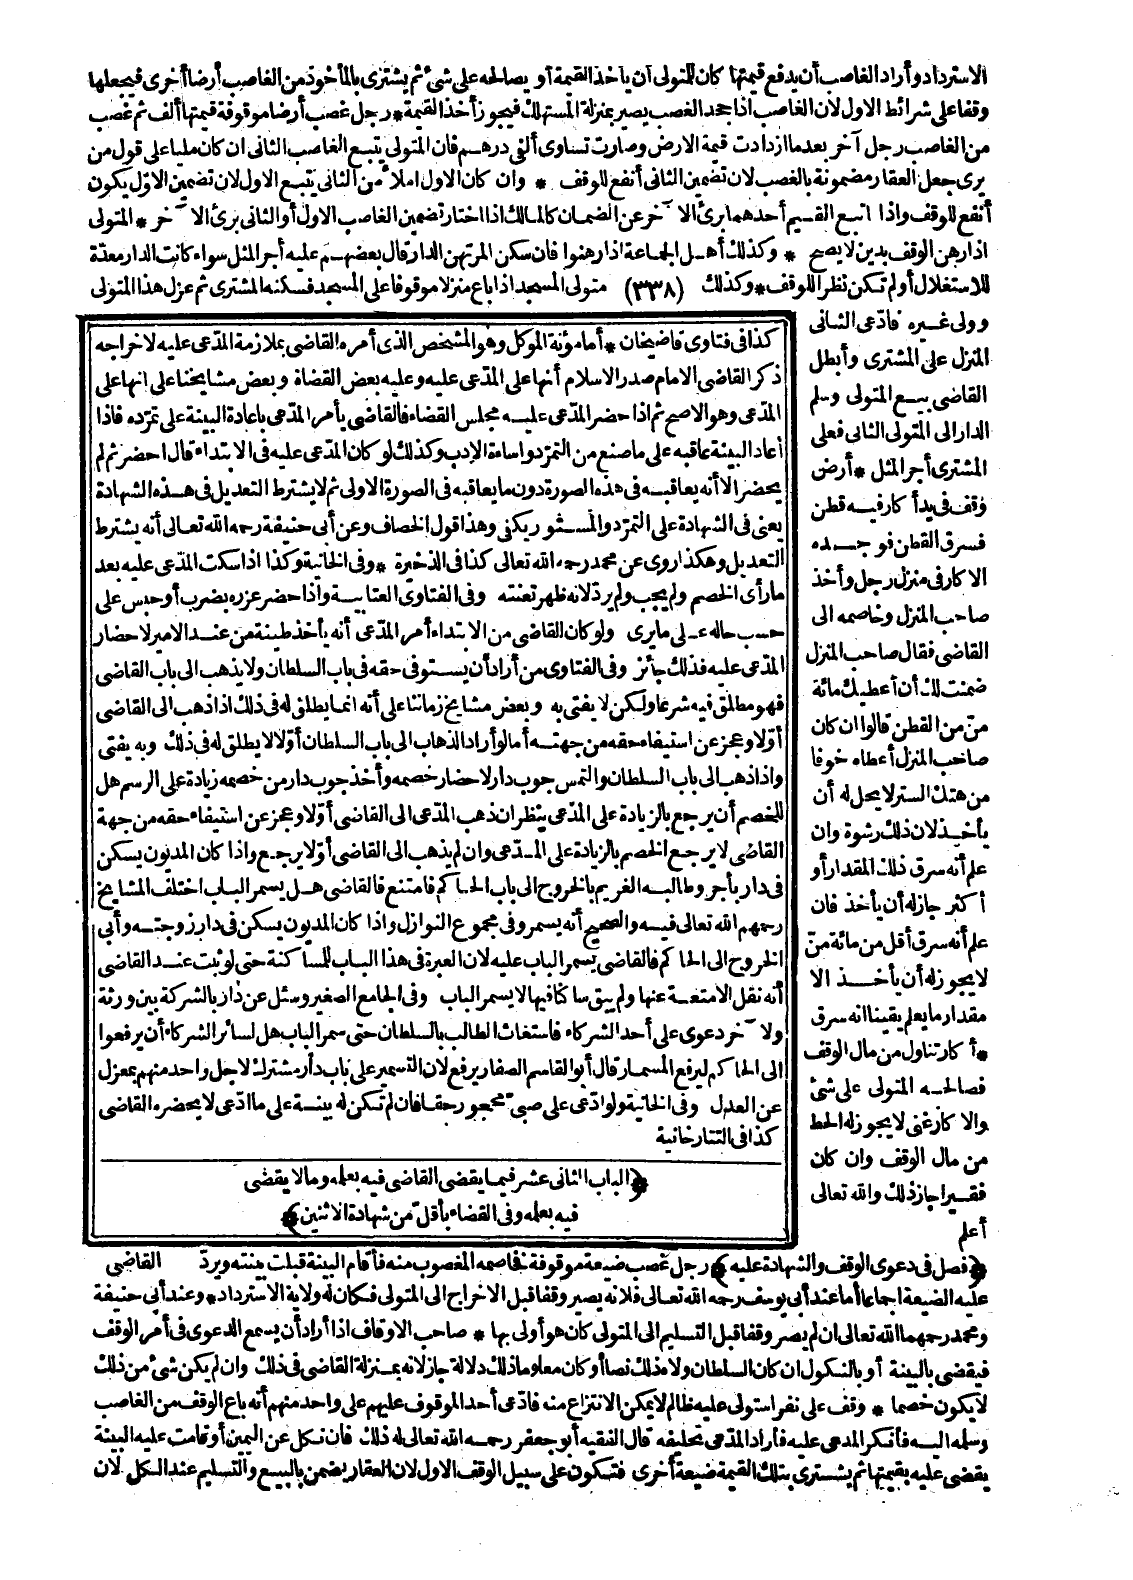 الاسترداد وأراد الغاصب أن يدفع قيمتها كان للمتولى أن يأخذ القيمة أو يصالحه على شئ ثم يشترى بالمأخوذ من الغاصب أرضا أخرى فيجعلها
وقفا على شرائط الاول لان الغاصب اذا جحد الغصب يصير بمنزلة المستهلك فيجوز أخذ القيمة * رجل غصب أرضا موقوفة قيمتها ألف ثم غصب
من الغاصب رجل آخر بعد ما ازدادت قيمة الارض وصارت تساوى ألفى درهم فان المتولى يتبع الغاصب الثانى ان كان مليا على قول من
يرى جعل العقار مضمونة بالغصب لان تضمين الثانى أنفع للوقف * وان كان الاول املأ من الثانى يتبع الاول لان تضمين الاوّل يكون
أنفع للوقف واذا اتبع القيم أحدهما برئ الآخر عن الضمان كالمالك اذا اختار تضمين الغاصب الاول أو الثانى برئ الآخر * المتولى
اذا رهن الوقف بدين لا يصح * وكذلك أهل الجماعة اذا رهنوا فان سكن المرتهن الدار قال بعضهم عليه أجر المثل سواء كانت الدار معدّة
للاستغلال أو لم تكن نظرا للوقف * وكذلك (٣٣٨) متولى المسجد اذا باع منزلا موقوفا على المسجد فسكنه المشترى ثم عزل هذا المتولى
وولى غيره فادّعى الثانى
المنزل على المشترى وأبطل
القاضى بيع المتولى وسلم
الدار الى المتولى الثانى فعلى
المشترى أجر المثل * أرض
وقف فى يد أكار فيه قطن
فسرق القطن فوجده
الاكار فى منزل رجل وأخذ
صاحب المنزل وخاصمه الى
القاضى فقال صاحب المنزل
ضمنت لك أن أعطيك مائة
منّ من القطن قالوا ان كان
صاحب المنزل أعطاه خوفا
من هتك الستر لا يحل له أن
يأخذ لان ذلك رشوة وان
علم أنه سرق ذلك المقدار أو
أكثر جاز له أن يأخذ فان
علم أنه سرق أقل من مائة منّ
لا يجوز له أن يأخذ الا
مقدار ما يعلم يقينا انه سرق
* أكار تناول من مال الوقف
فصالحه المتولى على شئ
والاكار غنى لا يجوز له الحط
من مال الوقف وان كان
فقيرا جاز ذلك والله تعالى
أعلم
كذا فى فتاوى قاضيخان * أما مؤنة الموكل وهو المشخص الذى أمره القاضى بملازمة المدّعى عليه لاخراجه
ذكر القاضى الامام صدر الاسلام أنها على المدّعى عليه وعليه بعض القضاة وبعض مشايخنا على انها على
المدّعى وهو الاصح ثم اذا حضر المدّعى عليه مجلس القضاء فالقاضى يأمر المدّعى باعادة البينة على تمرّده فاذا
أعاد البينة عاقبه على ما صنع من التمرّد واساءة الادب وكذلك لو كان المدّعى عليه فى الابتداء قال احضر ثم لم
يحضر الا أنه يعاقبه فى هذه الصورة دون ما يعاقبه فى الصورة الاولى ثم لا يشترط التعديل فى هذه الشهادة
يعنى فى الشهادة على التمرّد والمستور يكفى وهذا قول الخصاف وعن أبى حنيفة رحمه الله تعالى أنه يشترط
التعديل وهكذا روى عن محمد رحمه الله تعالى كذا فى الذخيرة * وفى الخانية وكذا اذا سكت المدّعى عليه بعد
ما رأى الخصم ولم يجب ولم يردّ لانه ظهر تعنته وفى الفتاوى العتابية واذا حضر عزره بضرب أو حبس على
حسب حاله على ما يرى ولو كان القاضى من الابتداء أمر المدّعى أنه يأخذ طينة من عند الامير لاحضار
المدّعى عليه فذلك جائز وفى الفتاوى من أراد أن يستوفى حقه فى باب السلطان ولا يذهب الى باب القاضى
فهو مطلق فيه شرعا ولكن لا يفتى به وبعض مشايخ زماننا على أنه انما يطلق له فى ذلك اذا ذهب الى القاضى
أوّلا وعجز عن استيفاء حقه من جهته أما لو أراد الذهاب الى باب السلطان أوّلا لا يطلق له فى ذلك وبه يفتى
واذا ذهب الى باب السلطان والتمس جوب دار لاحضار خصمه وأخذ جوب دار من خصمه زيادة على الرسم هل
للخصم أن يرجع بالزيادة على المدّعى ينظر ان ذهب المدّعى الى القاضى أوّلا وعجز عن استيفاء حقه من جهة
القاضى لا يرجع الخصم بالزيادة على المدّعى وان لم يذهب الى القاضى أوّلا يرجع واذا كان المديون يسكن
فى دار بأجر وطالبه الغريم بالخروج الى باب الحاكم فامتنع فالقاضى هل يسمر الباب اختلف المشايخ
رحمهم الله تعالى فيه والصحيح أنه يسمر وفى مجموع النوازل واذا كان المديون يسكن فى دار زوجته وأبى
الخروج الى الحاكم فالقاضى يسمر الباب عليه لان العبرة فى هذا الباب للمساكنة حتى لو ثبت عند القاضى
أنه نقل الامتعة عنها ولم يبق ساكنا فيها لا يسمر الباب وفى الجامع الصغير وسئل عن دار بالشركة بين ورثة
ولآخر دعوى على أحد الشركاء فاستغاث الطالب بالسلطان حتى سمر الباب هل لسائر الشركاء أن يرفعوا
الى الحاكم ليرفع المسمار قال أبو القاسم الصفار يرفع لان التسمير على باب دار مشترك لاجل واحد منهم بمعزل
عن العدل وفى الخانية ولو ادّعى على صبىّ محجور حقا فان لم تكن له بينة على ما ادّعى لا يحضره القاضى
كذا فى التتارخانية
﴿الباب الثانى عشر فيما يقضى القاضى فيه بعلمه وما لا يقضى
فيه بعلمه وفى القضاء بأقلّ من شهادة الاثنين﴾
﴿فصل فى دعوى الوقف والشهادة عليه﴾ رجل غصب ضيعة موقوفة فخاصمه المغصوب منه فأقام البينة قبلت بينته ويردّ القاضى
عليه الضيعة اجماعا أما عند أبى يوسف رحمه الله تعالى فلانه يصير وقفا قبل الاخراج الى المتولى فكان له ولاية الاسترداد * وعند أبى حنيفة
ومحمد رحمهما الله تعالى ان لم يصر وقفا قبل التسليم الى المتولى كان هو أولى بها * صاحب الاوقاف اذا أراد أن يسمع الدعوى فى أمر الوقف
فيقضى بالبينة أو بالنكول ان كان السلطان ولاه ذلك نصا أو كان معلوما ذلك دلالة جاز لانه بمنزلة القاضى فى ذلك وان لم يكن شئ من ذلك
لا يكون خصما * وقف على نفر استولى عليه ظالم لا يمكن الانتزاع منه فادّعى أحد الموقوف عليهم على واحد منهم أنه باع الوقف من الغاصب
وسلمه اليه فأنكر المدعى عليه فأراد المدّعى تحليفه قال الفقيه أبو جعفر رحمه الله تعالى له ذلك فان نكل عن اليمين أو قامت عليه البينة
يقضى عليه بقيمتها ثم يشترى بتلك القيمة ضيعة أخرى فتكون على سبيل الوقف الاول لان العقار يضمن بالبيع والتسليم عند الكل لان